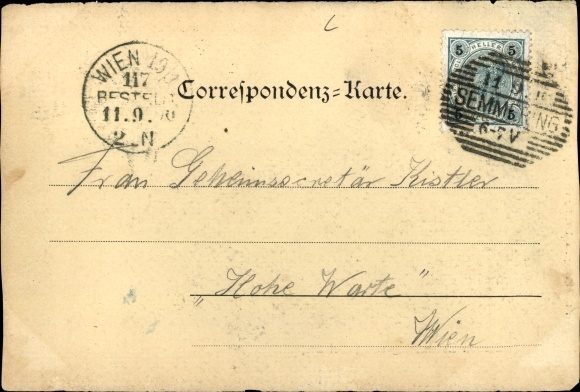 WIEN
117
BESTELLT
11. 9.
2. N
Correspondenz=Karte.
5 HELLER 5
11 9
SEMMERING
6-7 V
Frau Geheimssecretär Kistler
„Hohe Warte"
Wien